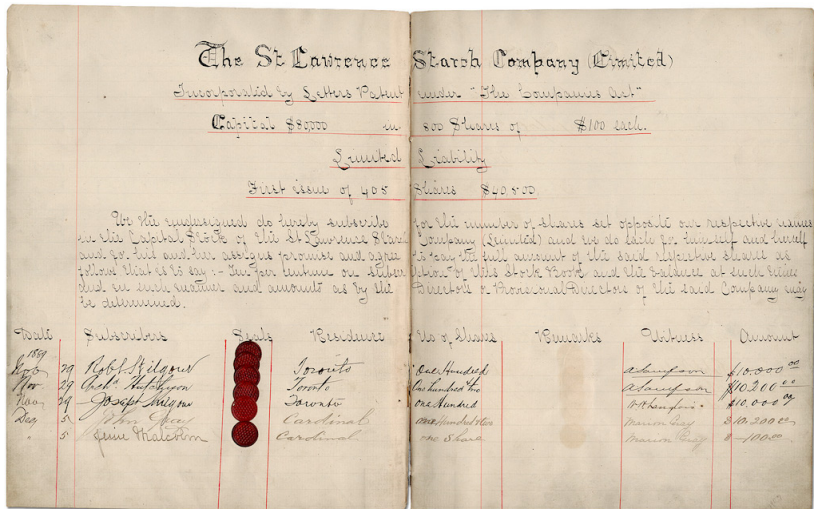 The St Lawrence Starch Company (Limited)
Incorporated by Letters Patent under "The Companies Act"
Capital $80000 in 800 Shares of $100 each.
Limited Liability
First issue of 405 Shares $40,500.
We the undersigned do hereby subscribe for the number of shares set opposite our respective names
in the Capital Stock of the St Lawrence Starch Company (Limited) and we do each for himself and herself
and for his and her assigns promise and agree to pay the full amount of the said respective shares as
follows that is to say :- Ten per centum on of this Stock Book and the balance at such times
and in such manner and amounts as by the Directors or Provisional Directors of the said Company may
be determined.
Date Subscribers Seals Residence No of Shares Remarks Witness Amount
1889
Nov 29 Robt Kilgour Toronto One Hundred $10,000 00
Nov. 29 Toronto One hundred two $10,200 00
Nov 29 Joseph Kilgour Toronto One Hundred $10,000 00
Dec 5 John Gray Cardinal One Hundred two Marion Gray $10,200 00
" 5 Malcolm Cardinal One Share Marion Gray $ 100 00